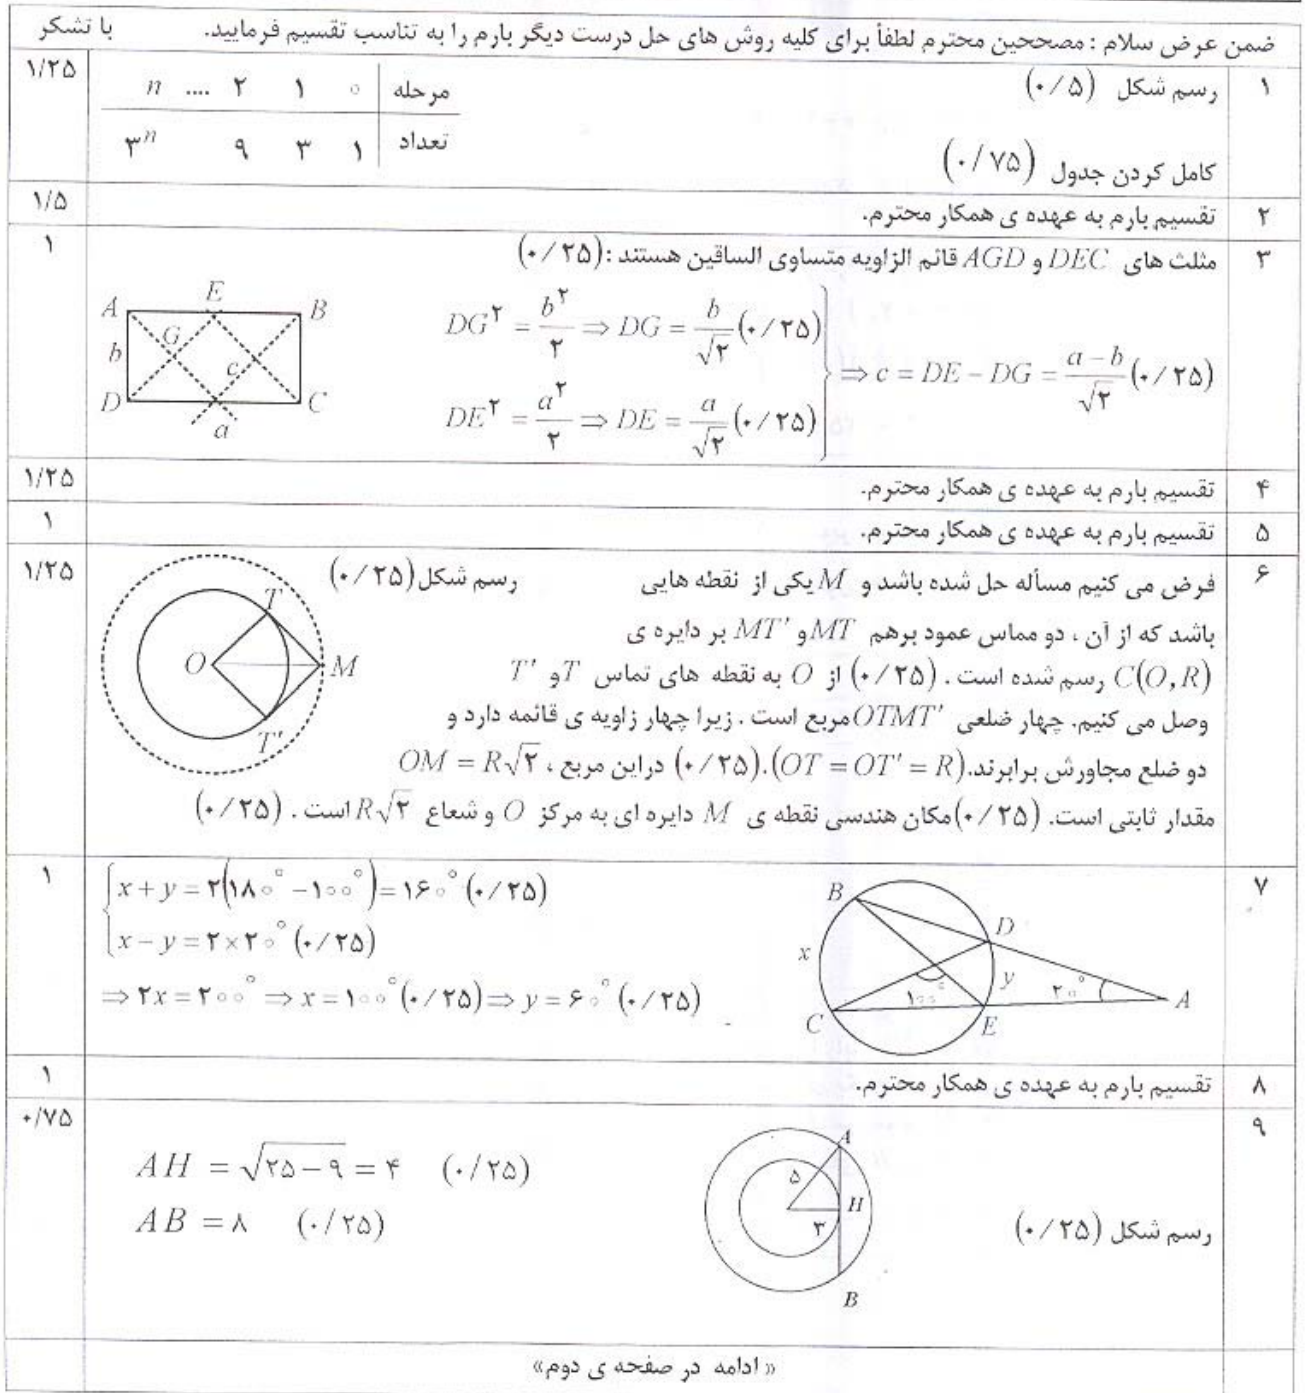 ضمن عرض سلام : مصححین محترم لطفاً برای کلیه روش های حل درست دیگر بارم را به تناسب تقسیم فرمایید. با تشکر
۱ رسم شکل (۰/۵) ۱/۲۵
مرحله ۰ ۱ ۲ .... n
تعداد ۱ ۳ ۹ ۳^n
کامل کردن جدول (۰/۷۵)
۲ تقسیم بارم به عهده ی همکار محترم. ۱/۵
۳ مثلث های DEC و AGD قائم الزاویه متساوی الساقین هستند : (۰/۲۵) ۱
A E B
b G c
D C
a
DG^۲ = b^۲/۲ ⇒ DG = b/√۲ (۰/۲۵)
DE^۲ = a^۲/۲ ⇒ DE = a/√۲ (۰/۲۵)
⇒ c = DE − DG = (a − b)/√۲ (۰/۲۵)
۴ تقسیم بارم به عهده ی همکار محترم. ۱/۲۵
۵ تقسیم بارم به عهده ی همکار محترم. ۱
۶ فرض می کنیم مسأله حل شده باشد و M یکی از نقطه هایی رسم شکل (۰/۲۵) ۱/۲۵
باشد که از آن ، دو مماس عمود برهم MT و MT' بر دایره ی
C(O,R) رسم شده است . (۰/۲۵) از O به نقطه های تماس T و T'
وصل می کنیم. چهار ضلعی OTMT' مربع است . زیرا چهار زاویه ی قائمه دارد و
دو ضلع مجاورش برابرند.(OT = OT' = R).(۰/۲۵) دراین مربع ، OM = R√۲
مقدار ثابتی است. (۰/۲۵) مکان هندسی نقطه ی M دایره ای به مرکز O و شعاع R√۲ است . (۰/۲۵)
T
O M
T'
۷ ۱
x + y = ۲(۱۸۰° − ۱۰۰°) = ۱۶۰° (۰/۲۵)
x − y = ۲ × ۲۰° (۰/۲۵)
⇒ ۲x = ۲۰۰° ⇒ x = ۱۰۰° (۰/۲۵) ⇒ y = ۶۰° (۰/۲۵)
B D
x y ۲۰° A
۱۰۰°
C E
۸ تقسیم بارم به عهده ی همکار محترم. ۱
۹ ۰/۷۵
AH = √(۲۵ − ۹) = ۴ (۰/۲۵)
AB = ۸ (۰/۲۵)
رسم شکل (۰/۲۵)
A
۵
H
۳
B
« ادامه در صفحه ی دوم»